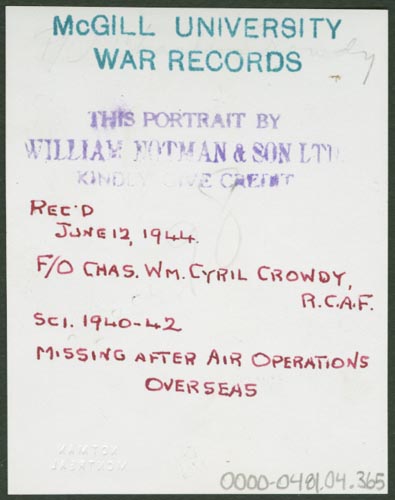 McGILL UNIVERSITY
WAR RECORDS
THIS PORTRAIT BY
WILLIAM NOTMAN & SON LTD.
KINDLY GIVE CREDIT
REC'D
JUNE 12, 1944.
F/O CHAS. WM. CYRIL CROWDY,
R.C.A.F.
SCI. 1940-42
MISSING AFTER AIR OPERATIONS
OVERSEAS
NOTMAN
MONTREAL
0000-0481.04.365